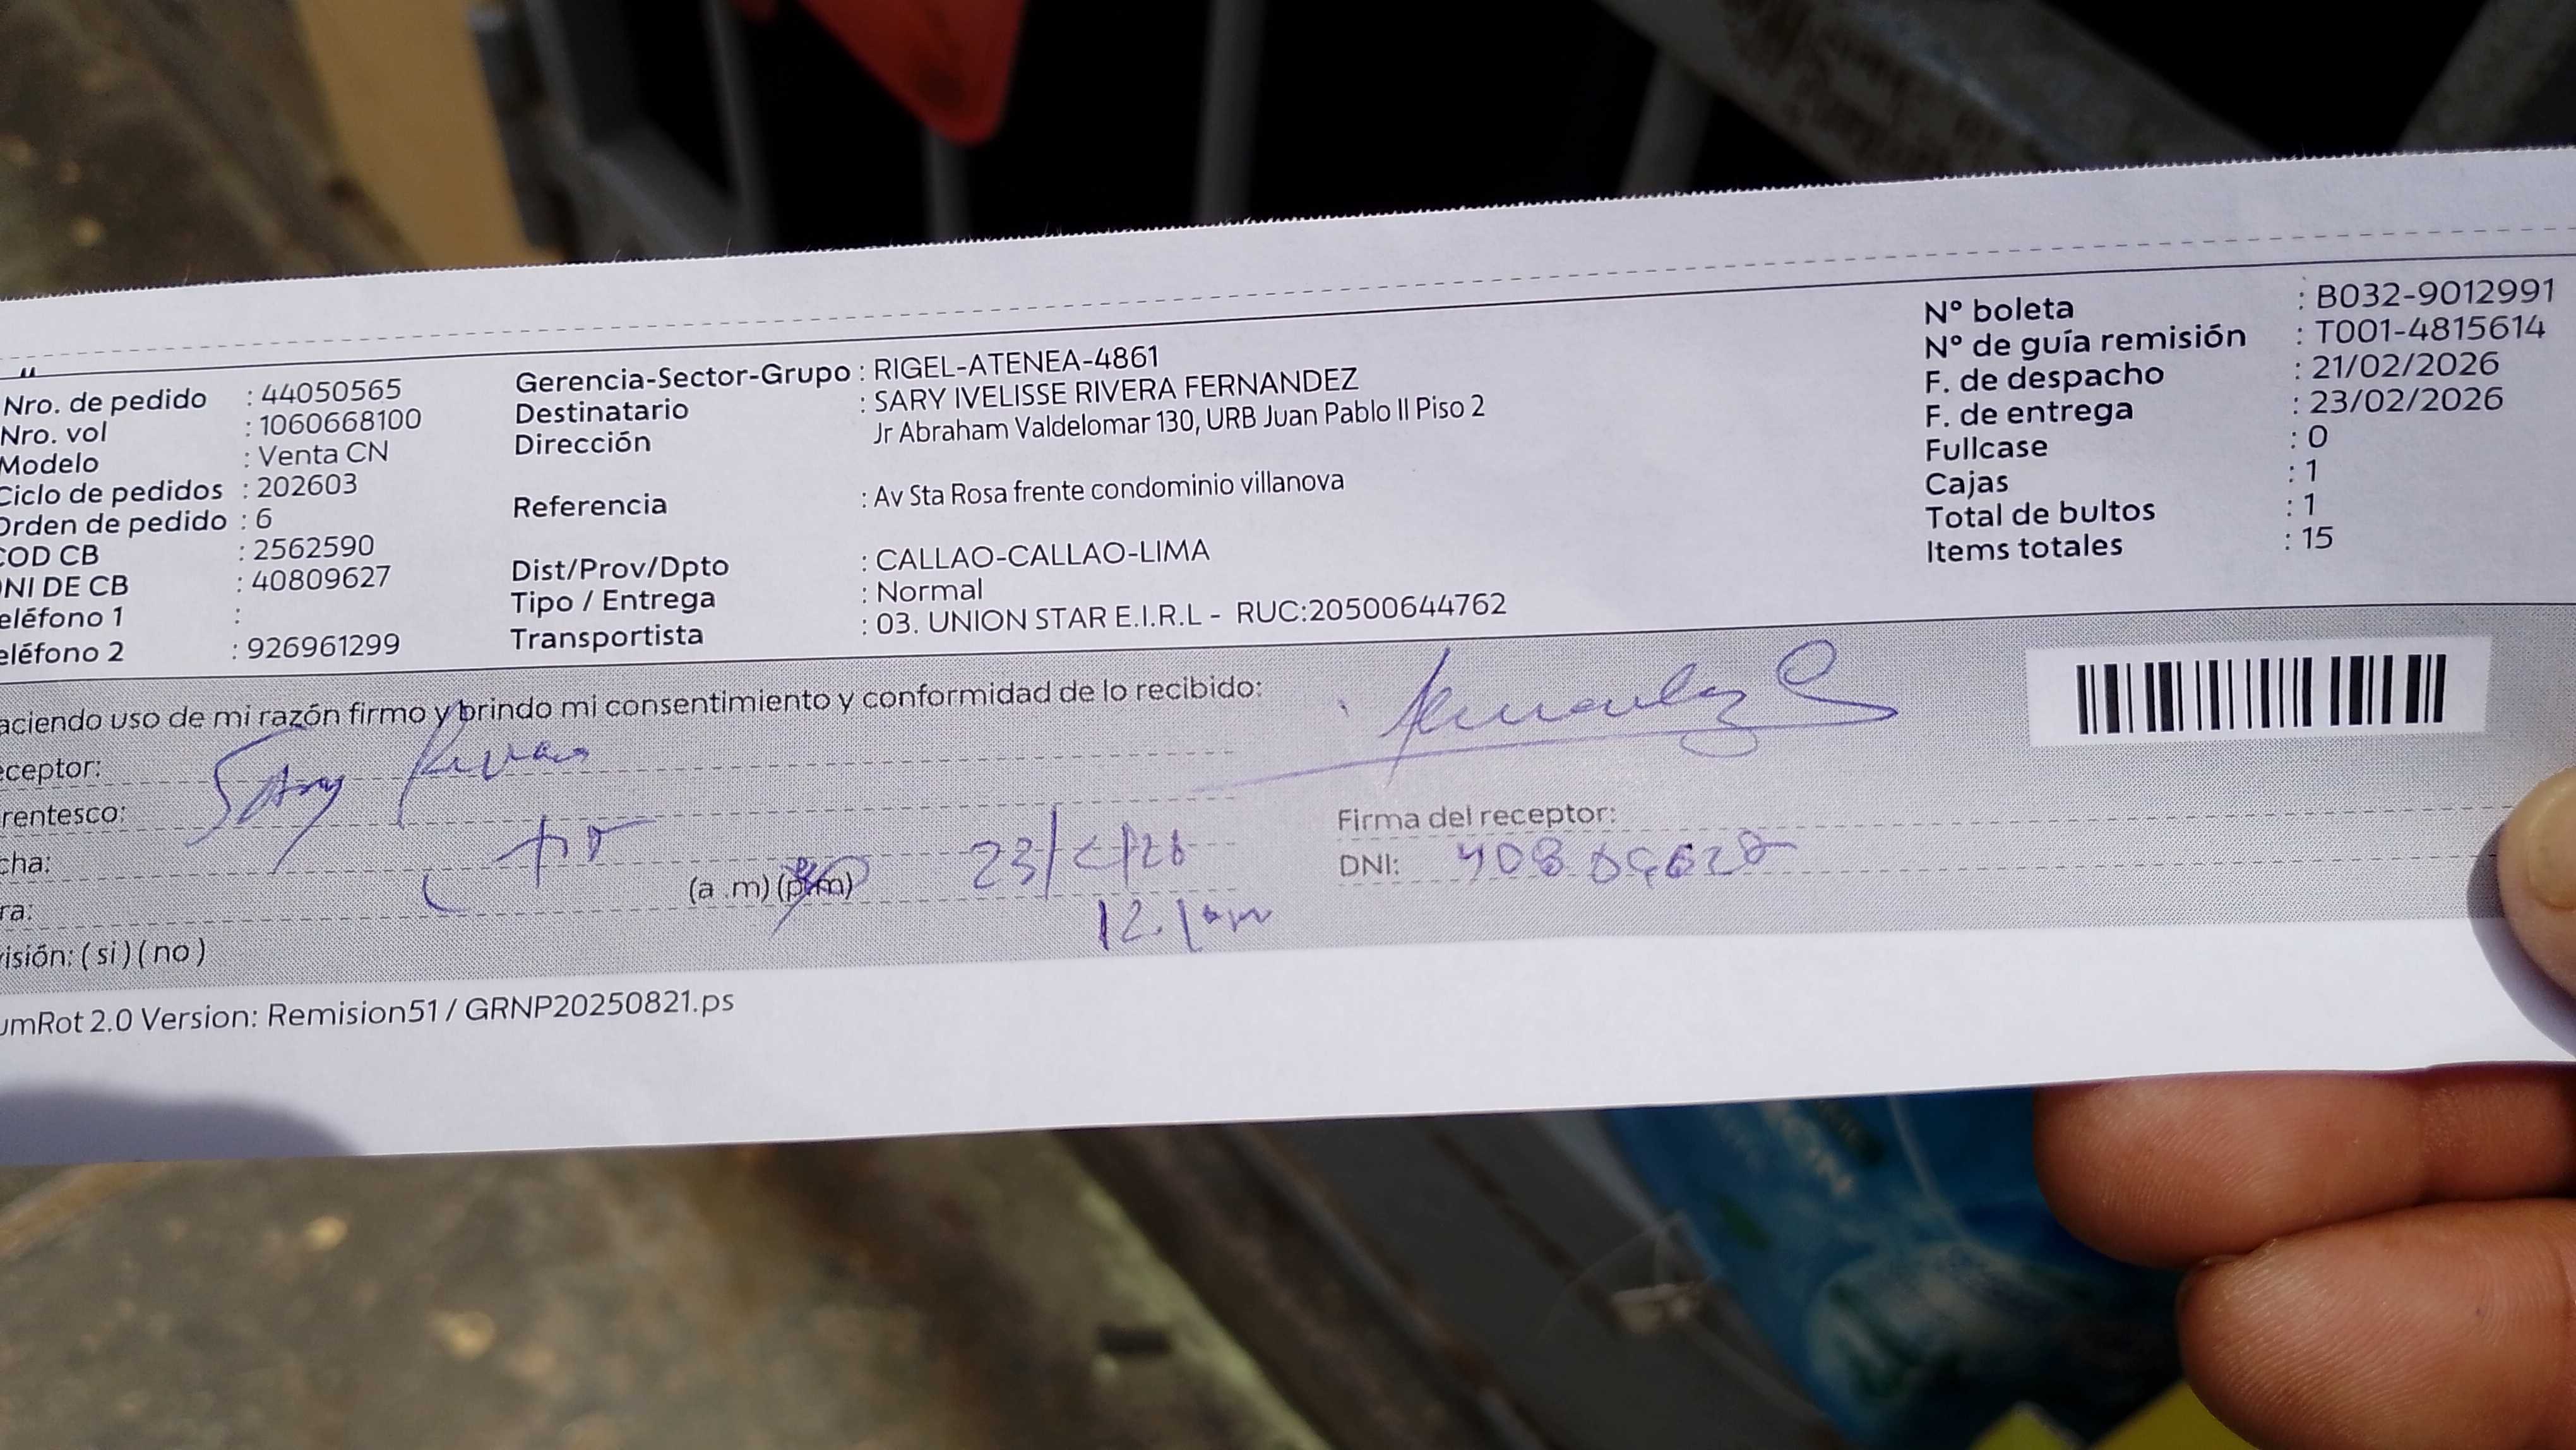 Nro. de pedido : 44050565
Nro. vol : 1060668100
Modelo : Venta CN
Ciclo de pedidos : 202603
Orden de pedido : 6
COD CB : 2562590
DNI DE CB : 40809627
eléfono 1 :
eléfono 2 : 926961299
Gerencia-Sector-Grupo : RIGEL-ATENEA-4861
Destinatario : SARY IVELISSE RIVERA FERNANDEZ
Dirección Jr Abraham Valdelomar 130, URB Juan Pablo II Piso 2
Referencia : Av Sta Rosa frente condominio villanova
Dist/Prov/Dpto : CALLAO-CALLAO-LIMA
Tipo / Entrega : Normal
Transportista : 03. UNION STAR E.I.R.L - RUC:20500644762
Nº boleta : B032-9012991
Nº de guía remisión : T001-4815614
F. de despacho : 21/02/2026
F. de entrega : 23/02/2026
Fullcase : 0
Cajas : 1
Total de bultos : 1
Items totales : 15
aciendo uso de mi razón firmo y brindo mi consentimiento y conformidad de lo recibido:
eceptor: Sary Rivera
rentesco:
cha:
(a .m) (p.m)
ra:
isión: ( si ) ( no )
Firma del receptor:
DNI:
umRot 2.0 Version: Remision51 / GRNP20250821.ps